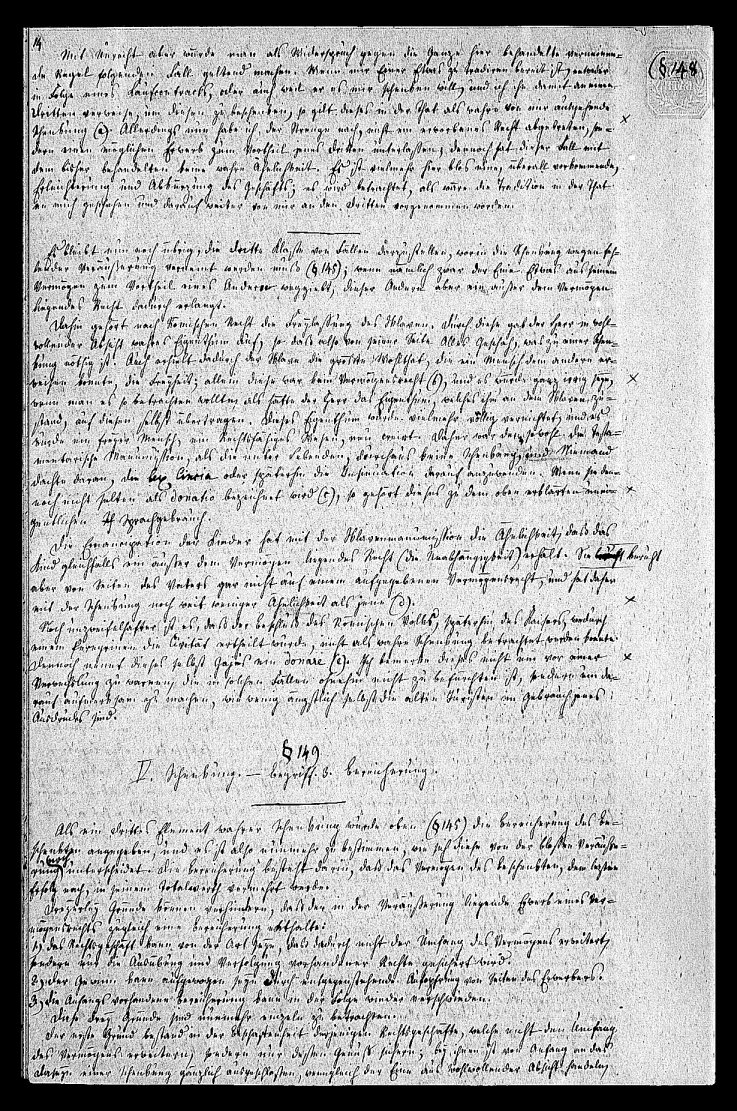 14
(§ 148)
Mit Unrecht aber würde man als Widerspruch gegen die ganze hier behandelte verneinen-
de Regel folgenden Fall geltend machen. Wenn mir Einer Etwas zu tradiren bereit ist, entweder
in Folge eines Kaufcontracts, oder auch weil er es mir schenken will, und ich ihn damit an einen
Dritten verweise, um diesen zu beschenken, so gilt dieses in der That als wahre von mir ausgehende
Schenkung (a). Allerdings nun habe ich, der Strenge nach, nicht ein erworbenes Recht abgetreten, son-
dern einen möglichen Erwerb zum Vortheil eines Dritten unterlassen; dennoch hat dieser Fall mit
dem bisher behandelten keine wahre Ähnlichkeit. Es ist vielmehr hier blos eine, überall vorkommende,
Erleichterung und Abkürzung des Geschäfts; es wird betrachtet, als wäre die Tradition in der That
an mich geschehen und darauf weiter von mir an den Dritten vorgenommen worden.
Es bleibt nun noch übrig, die dritte Klasse von Fällen darzustellen, worin die Schenkung wegen feh-
lender Veräußerung verneint werden muß (§ 145); wenn nämlich zwar der Eine Etwas aus seinem
Vermögen zum Vortheil eines Anderen weggiebt, dieser Andere aber ein außer dem Vermögen
liegendes Recht dadurch erlangt.
Dahin gehört nach Römischen Recht die Freylassung des Sklaven. Durch diese gab der Herr in wohl-
wollender Absicht wahres Eigenthum auf, so daß also von seiner Seite Alles geschah, was zu einer Schen-
kung nöthig ist. Auch erhielt dadurch der Sklave die größte Wohlthat, die ein Mensch dem andern er-
weisen konnte, die Freyheit; allein diese war kein Vermögensrecht, und es würde ganz irrig seyn,
wenn man es so betrachten wollte, als hätte der Herr das Eigenthum, welches ihm an dem Sklaven zu-
stand, auf diesen selbst übertragen. Dieses Eigenthum wurde vielmehr völlig vernichtet, und es
wurde ein freyer Mensch, ein rechtsfähiges Wesen, neu creirt. Daher war denn sowohl die testa-
mentarische Manumission, als die unter Lebenden, durchaus keine Schenkung, und Niemand
dachte daran, die lex Cincia oder späterhin die Insinuation darauf anzuwenden. Wenn sie den-
noch nicht selten als donatio bezeichnet wird (c), so gehört dieses zu dem oben erklärten uneigent-
lichen Sprachgebrauch.
Die Emancipation der Kinder hat mit der Sklavenmanumission die Ähnlichkeit, daß das
Kind gleichfalls ein außer dem Vermögen liegendes Recht (die Unabhängigkeit) erhält. Sie beruht
aber von Seiten des Vaters gar nicht auf einem aufgegebenen Vermögensrecht, und hat daher
mit der Schenkung noch weit weniger Ähnlichkeit als jene (d).
Noch unzweifelhafter ist es, daß der Beschluß des Römischen Volks, späterhin des Kaisers, wodurch
einem Peregrinen die Civität ertheilt wurde, nicht als wahre Schenkung betrachtet werden konnte.
Dennoch nennt dieses selbst Gajus ein donare (e). Ich bemerke dieses nicht um vor einer
Verwechslung zu warnen, die in solchen Fällen ohnehin nicht zu befürchten ist, sondern um da-
rauf aufmerksam zu machen, wie wenig ängstlich selbst die alten Juristen im Gebrauch jenes
Ausdrucks sind.
§ 149
IV. Schenkung. — Begriff. 3. Bereicherung.
Als ein drittes Element wahrer Schenkung wurde oben (§ 145) die Bereicherung des Be-
schenkten angegeben, und es ist also nunmehr zu bestimmen, wie sich diese von der bloßen Veräuße-
rung noch unterscheidet. Die Bereicherung besteht darin, daß das Vermögen des Beschenkten, dem letzten
Erfolg nach, in seinem Totalwerth vermehrt werde.
Dreyerley Gründe können verhindern, daß der in der Veräußerung liegende Erwerb eines Ver-
mögensrechts zugleich eine Bereicherung enthalte.
1) das Rechtsgeschäft kann von der Art seyn, daß dadurch nicht der Umfang des Vermögens erweitert,
sondern nur die Ausübung und Verfolgung vorhandener Rechte gesichert wird.
2) der Gewinn kann aufgewogen seyn durch entgegenstehende Aufopferung von Seiten des Erwerbers.
3) die Anfangs vorhandene Bereicherung kann in der Folge wieder verschwinden.
Diese drey Gründe sind nunmehr einzeln zu betrachten.
Der erste Grund bestand in der Beschaffenheit derjenigen Rechtsgeschäfte, welche nicht den Umfang
des Vermögens erweitern, sondern nur dessen Genuß sichern; bey ihnen ist von Anfang an das
Daseyn einer Schenkung gänzlich ausgeschlossen, wenngleich der Eine aus wohlwollender Absicht handeln